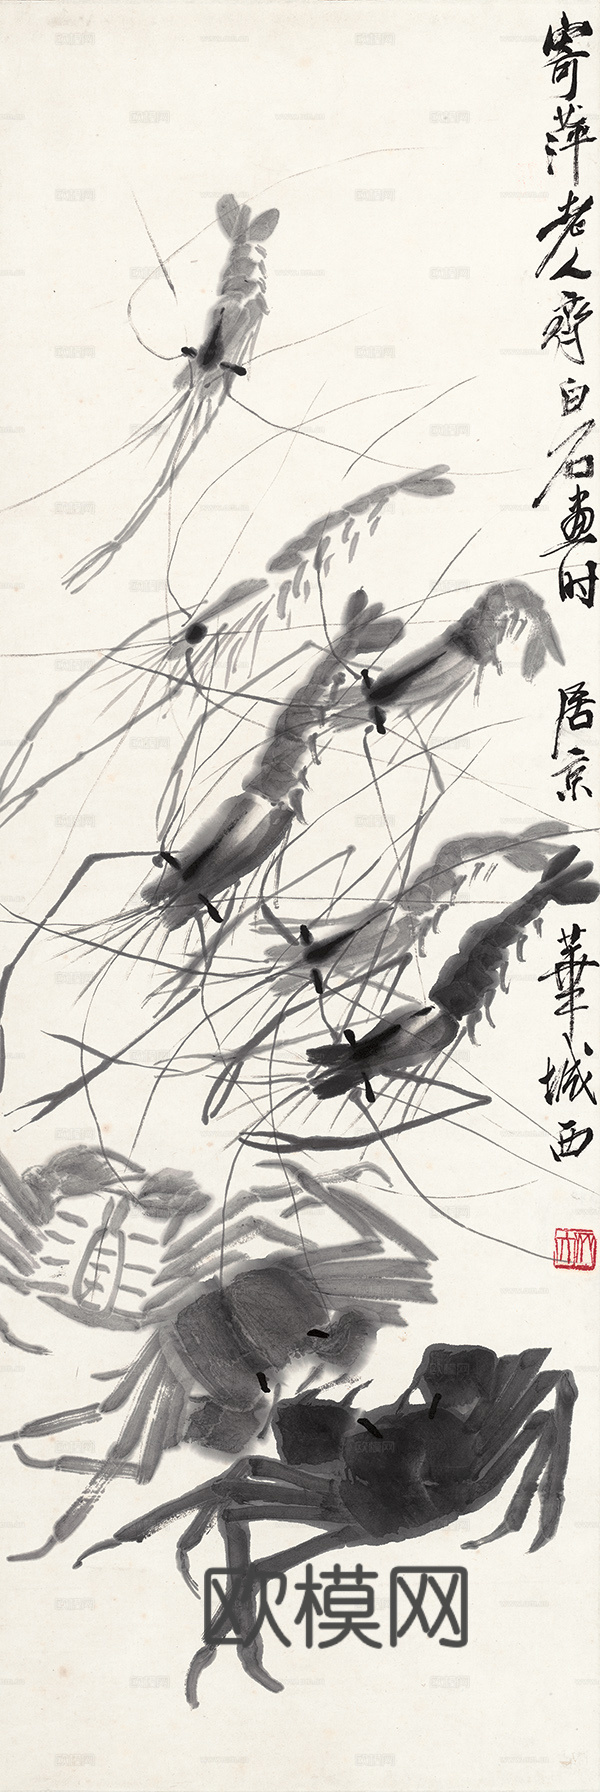 寄萍老人齊白石畫时居京華城西
欧模网